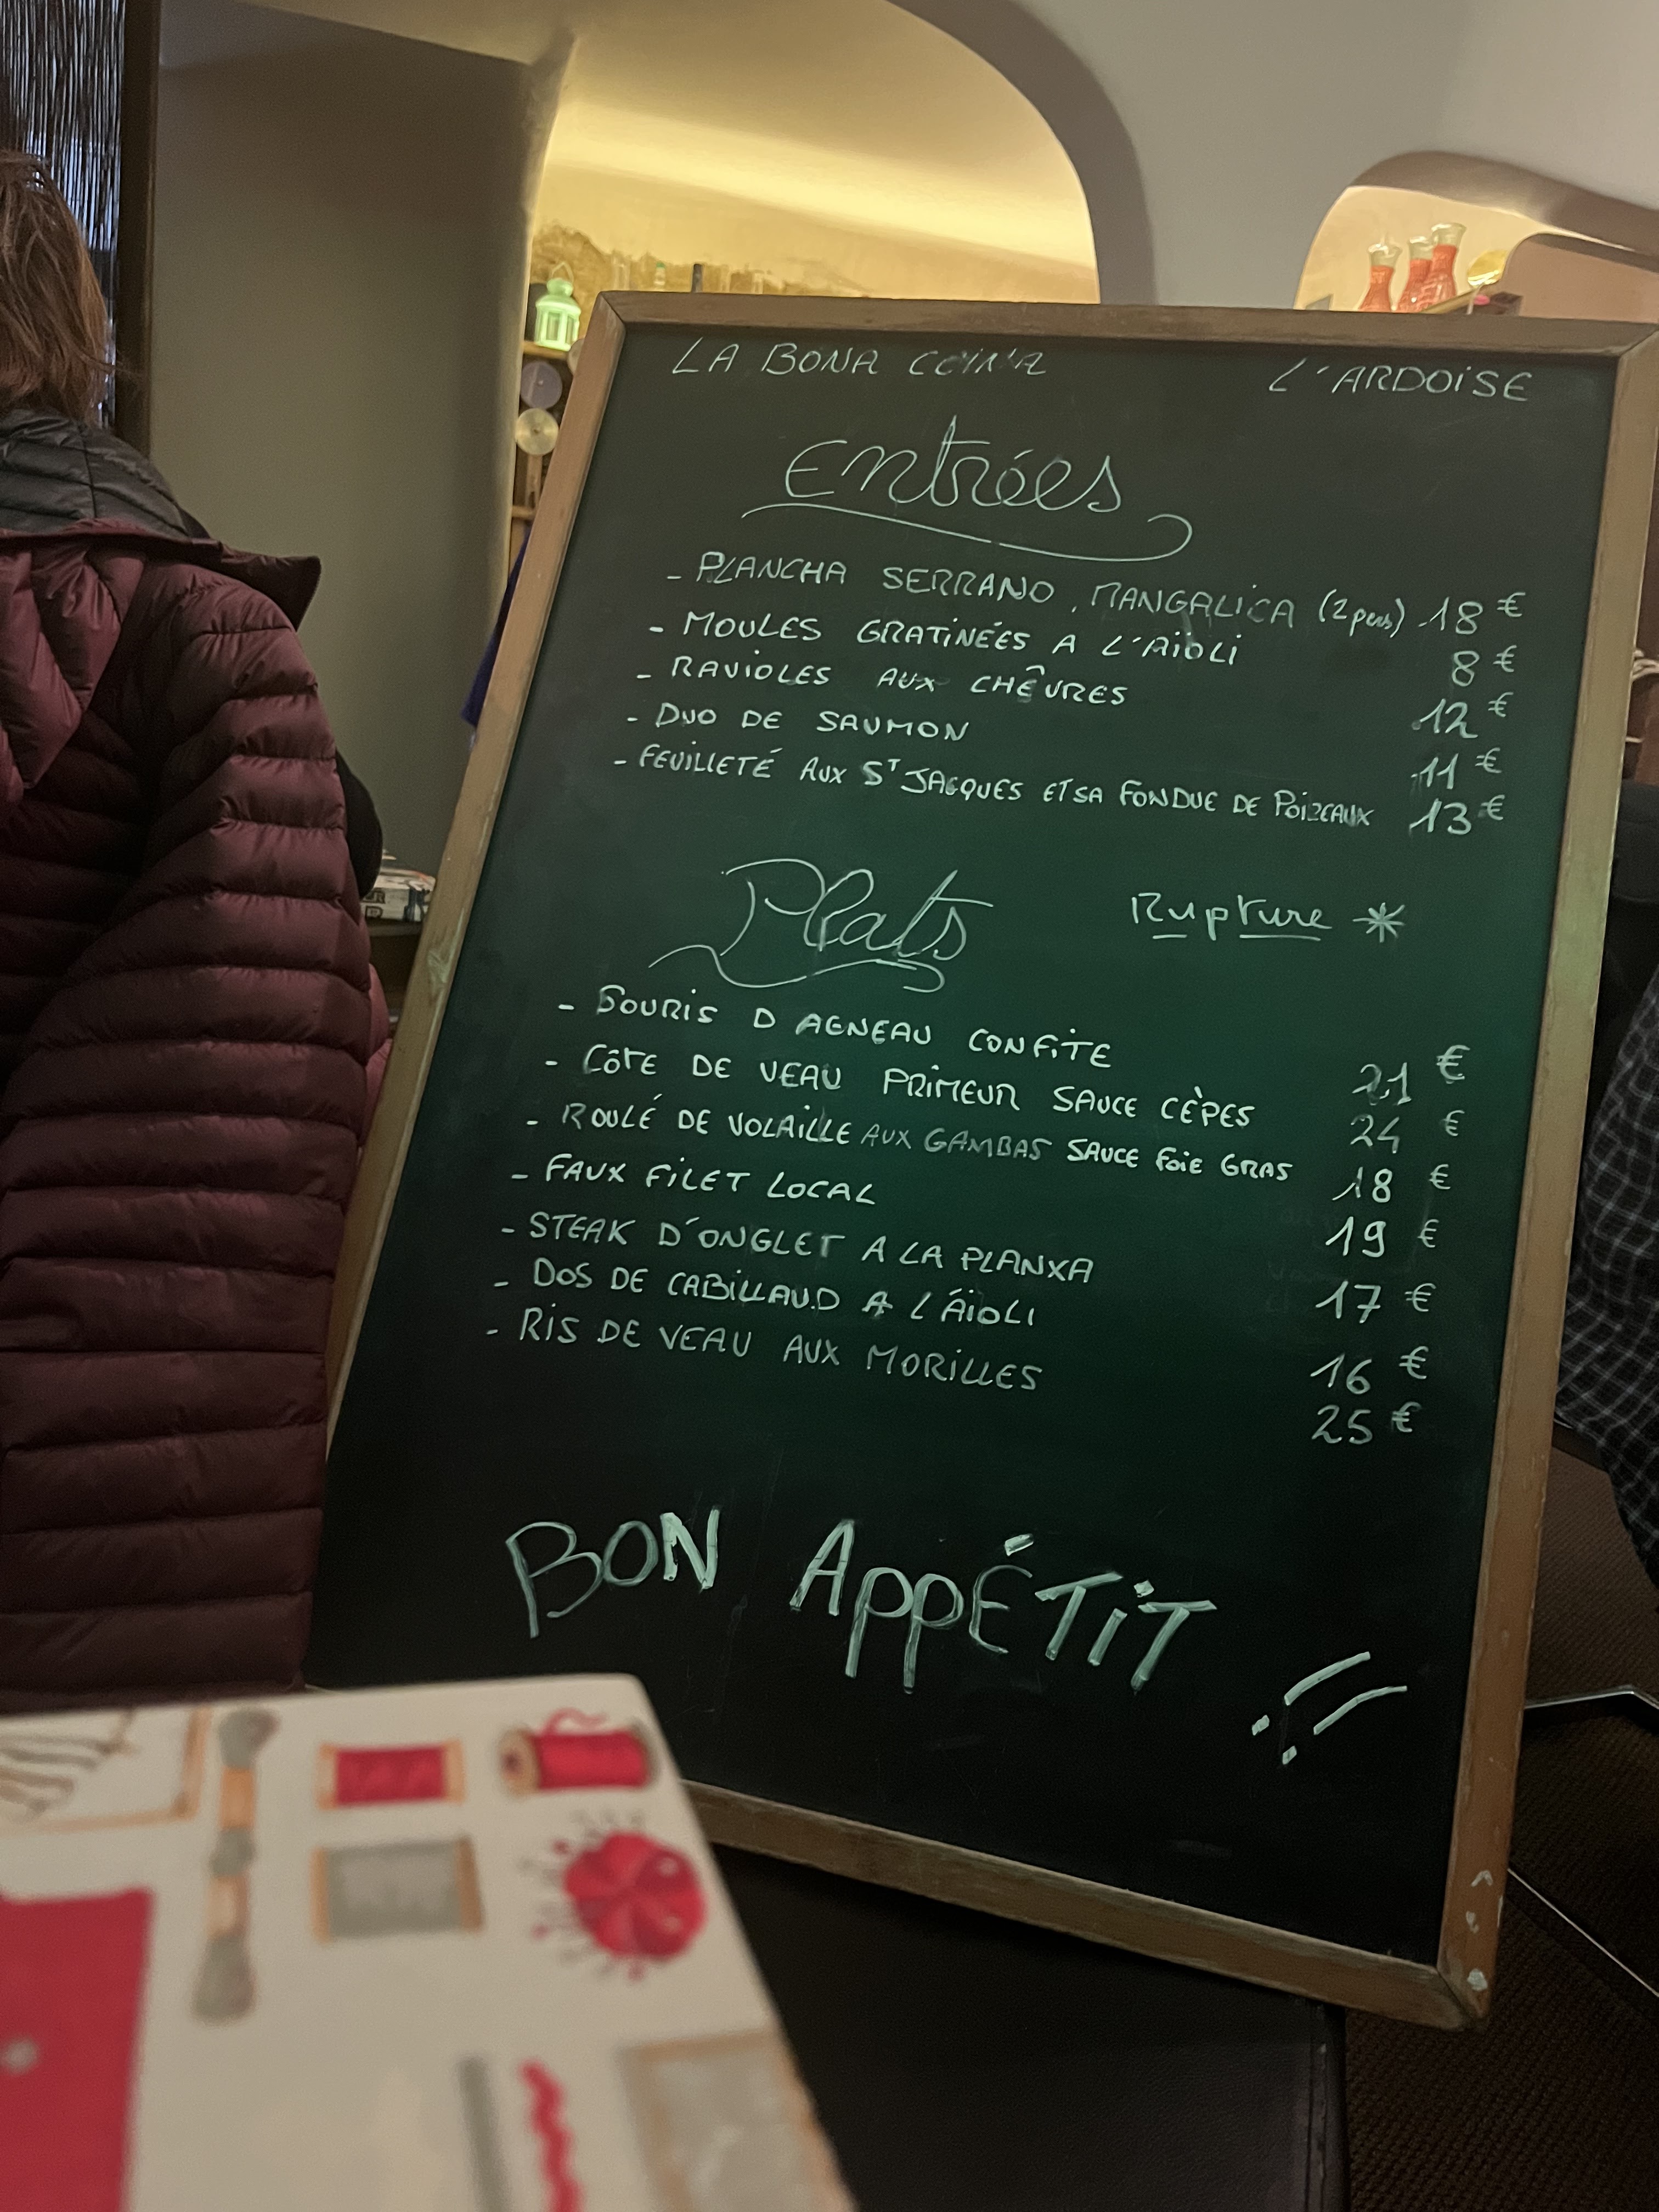 LA BONA CUINA L'ARDOISE
Entrées
- PLANCHA SERRANO, MANGALICA (2 pers) 18 €
- MOULES GRATINÉES A L'AÏOLI 8 €
- RAVIOLES AUX CHÊVRES 12 €
- DUO DE SAUMON 11 €
- FEUILLETÉ AUX ST JACQUES ET SA FONDUE DE POIREAUX 13 €
Plats Rupture *
- SOURIS D AGNEAU CONFITE 21 €
- CÔTE DE VEAU PRIMEUR SAUCE CÈPES 24 €
- ROULÉ DE VOLAILLE AUX GAMBAS SAUCE FOIE GRAS 18 €
- FAUX FILET LOCAL 19 €
- STEAK D'ONGLET A LA PLANXA 17 €
- DOS DE CABILLAUD A L'ÁIOLI 16 €
- RIS DE VEAU AUX MORILLES 25 €
BON APPÉTIT !!